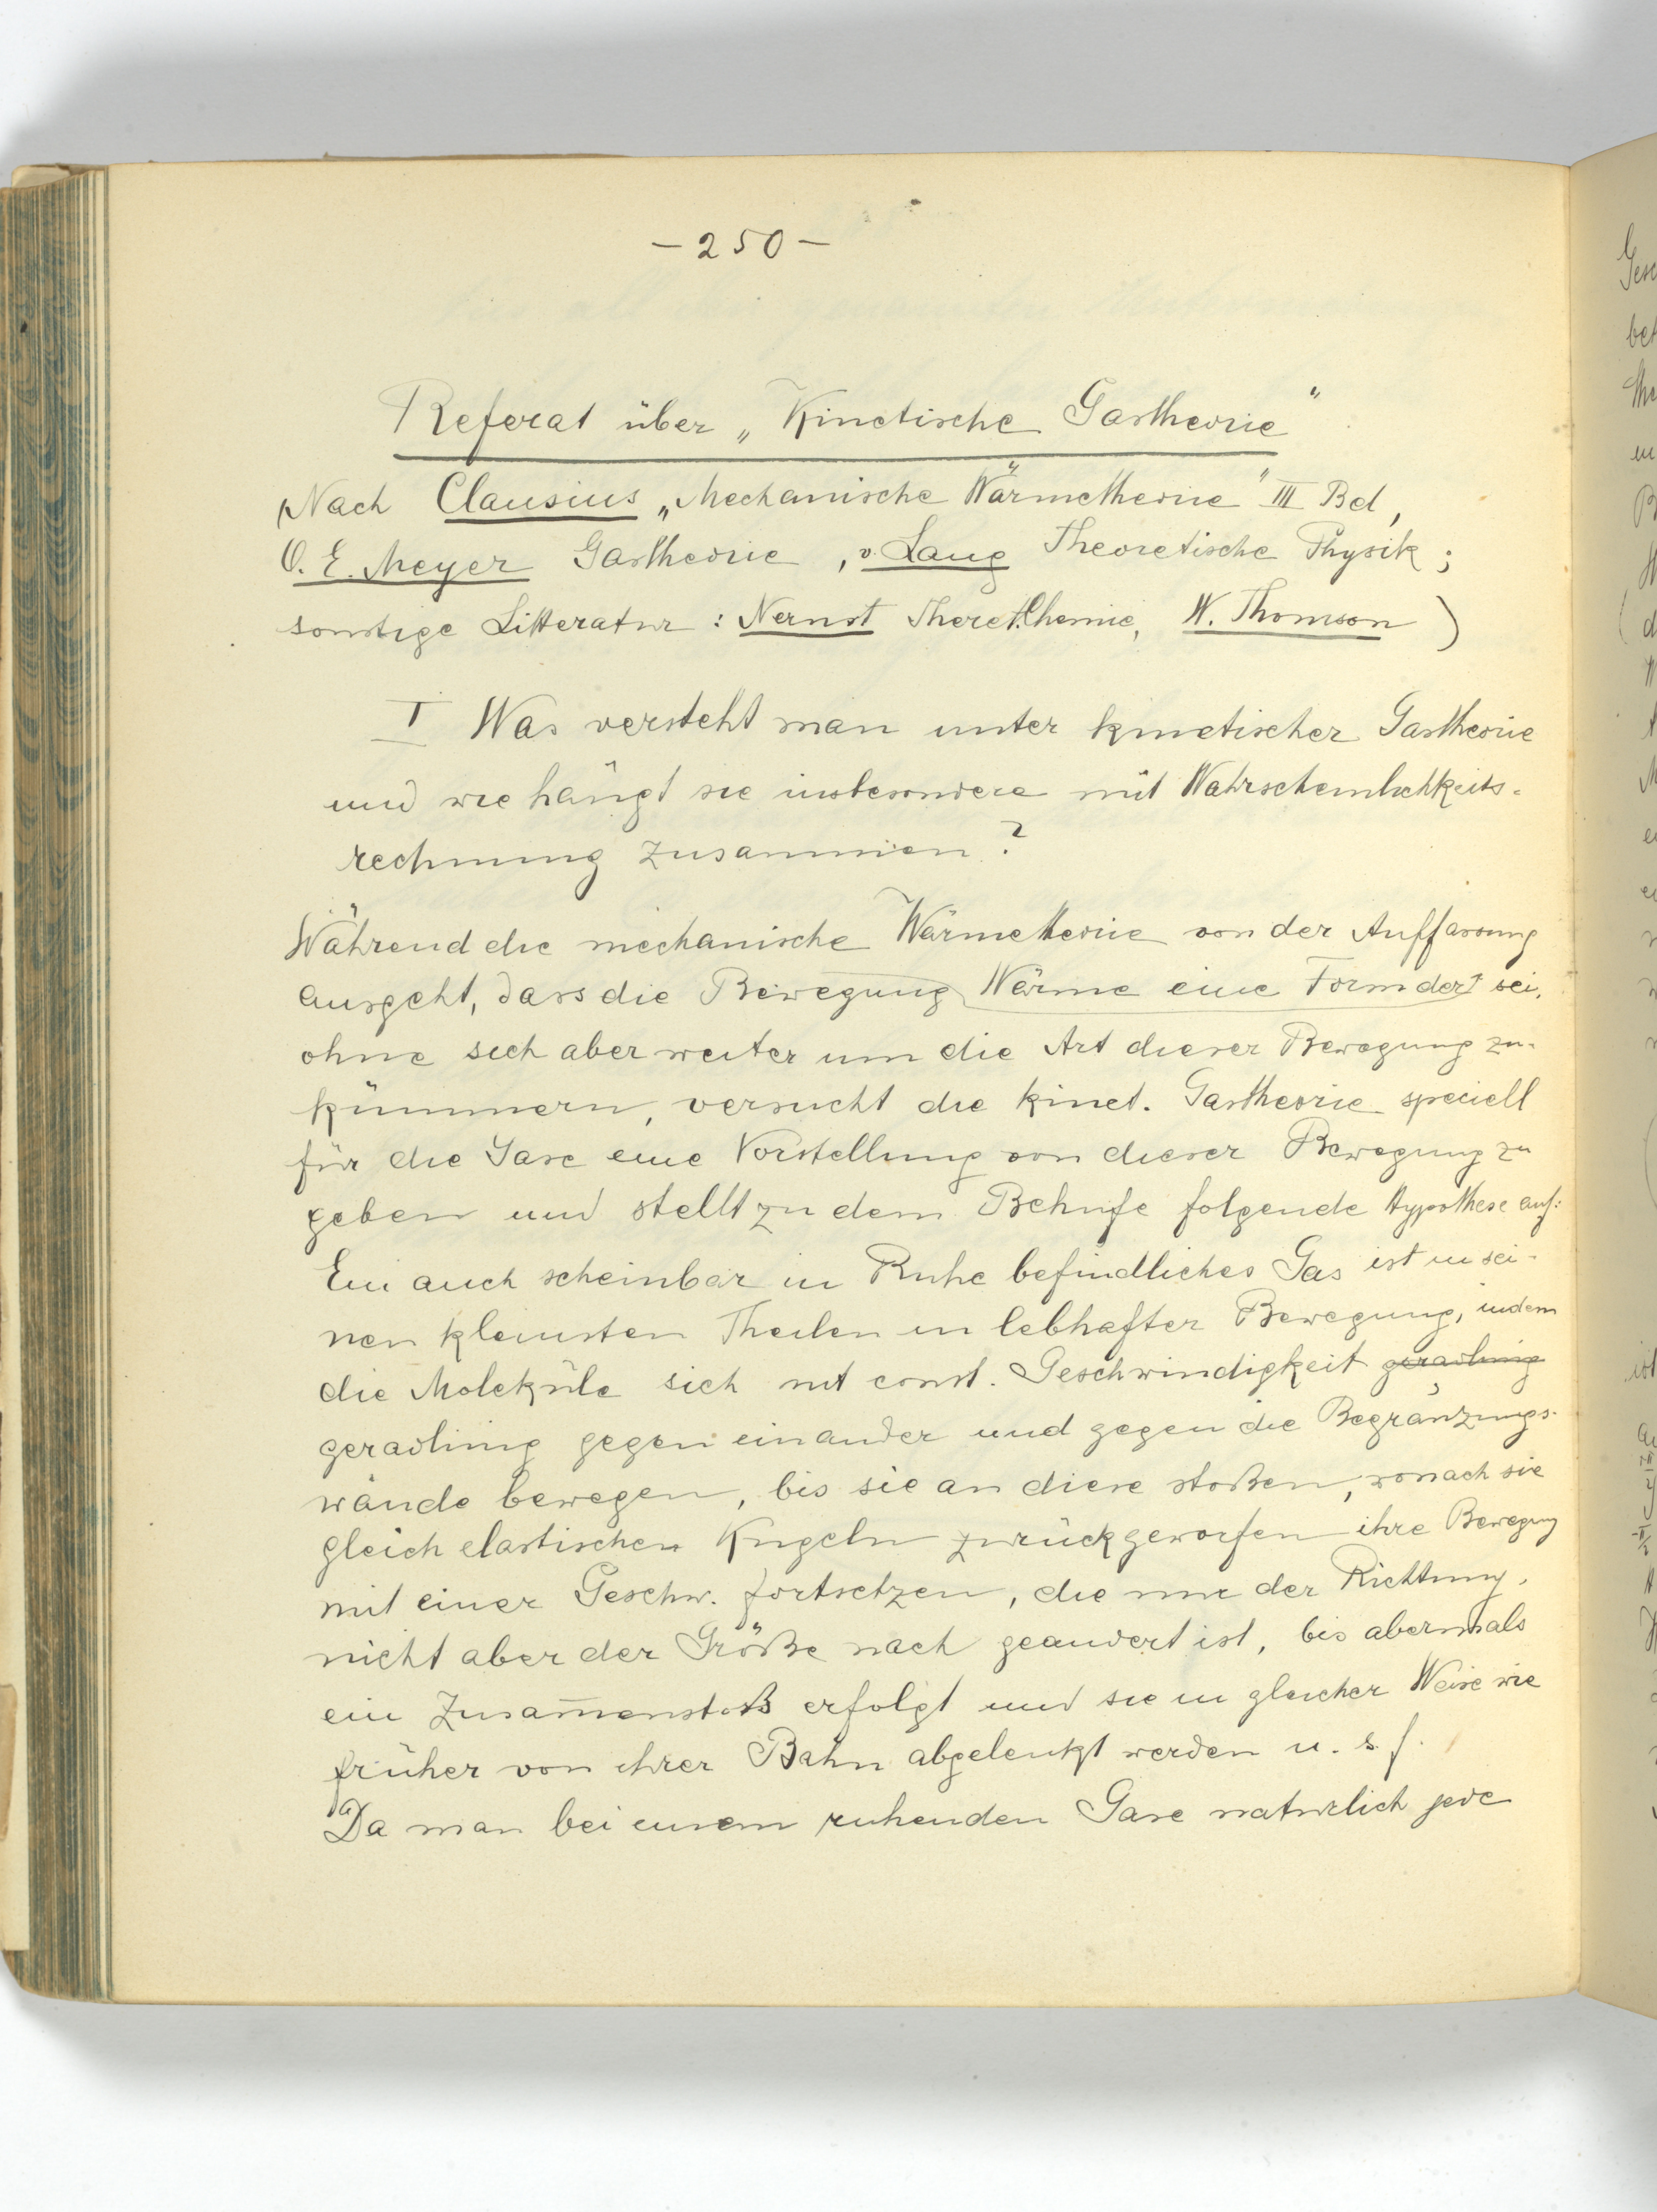 – 250 –
Referat über „Kinetische Gastheorie"
(Nach Clausius „Mechanische Wärmetheorie" III Bd,
O. E. Meyer Gastheorie, v. Lang Theoretische Physik;
sonstige Litteratur: Nernst Theret. Chemie, W. Thomson)
I Was versteht man unter kinetischer Gastheorie
und wie hängt sie insbesondere mit Wahrscheinlichkeits-
rechnung zusammen?
Während die mechanische Wärmetheorie von der Auffassung
ausgeht, dass die Bewegung Wärme eine Form der sei,
ohne sich aber weiter um die Art dieser Bewegung zu-
kümmern, versucht die kinet. Gastheorie speciell
für die Gase eine Vorstellung von dieser Bewegung zu
geben und stellt zu dem Behufe folgende Hypothese auf:
Ein auch scheinbar in Ruhe befindliches Gas ist in sei-
nen kleinsten Theilen in lebhafter Bewegung, indem
die Moleküle sich mit const. Geschwindigkeit geradlinig
geradlinig gegen einander und gegen die Begränzungs-
wände bewegen, bis sie an diese stoßen, wonach sie
gleich elastischen Kugeln zurückgeworfen ihre Bewegung
mit einer Geschw. fortsetzen, die nur der Richtung,
nicht aber der Größe nach geändert ist, bis abermals
ein Zusam̅enstoß erfolgt und sie in gleicher Weise wie
früher von ihrer Bahn abgelenkt werden u. s. f.
Da man bei einem ruhenden Gase natürlich jede